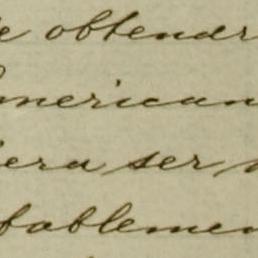 e obtendr
american
iera ser
bablemen